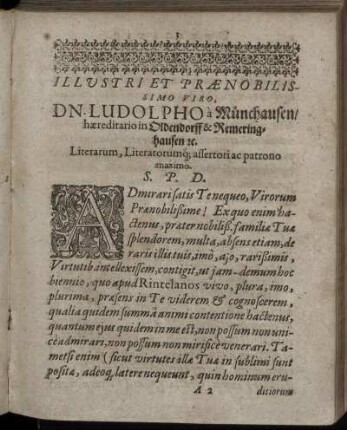 3
ILLUSTRI ET PRÆNOBILIS-
SIMO VIRO,
DN. LUDOLPHO à Münchausen/
hæreditario in Oldendorff & Remering-
hausen ꝛc.
Literarum, Literatorumq; assertori ac patrono
maximo.
S. P. D.
ADmirari satis Te nequeo, Virorum
Prænobilißime! Ex quo enim hac-
tenus, præter nobiliß. familiæ Tuæ
splendorem, multa, absens etiam, de
raris illis tuis, imò, ajo, rarißimis,
Virtutib. intellexissem, contigit, ut jam-demum hoc
biennio, quo apud Rintelanos vivo, plura, imo,
plurima, præsens in Te viderem & cognoscerem,
qualia quidem summâ animi contentione hactenus,
quantum ejus quidem in me est, non possum non uni-
cè admirari, non possum non mirificè venerari. Ta-
metsi enim (sicut virtutes illæ Tuæ in sublimi sunt
positæ, adeoq; latere nequeunt, quin hominum eru-
A 2 ditiorum